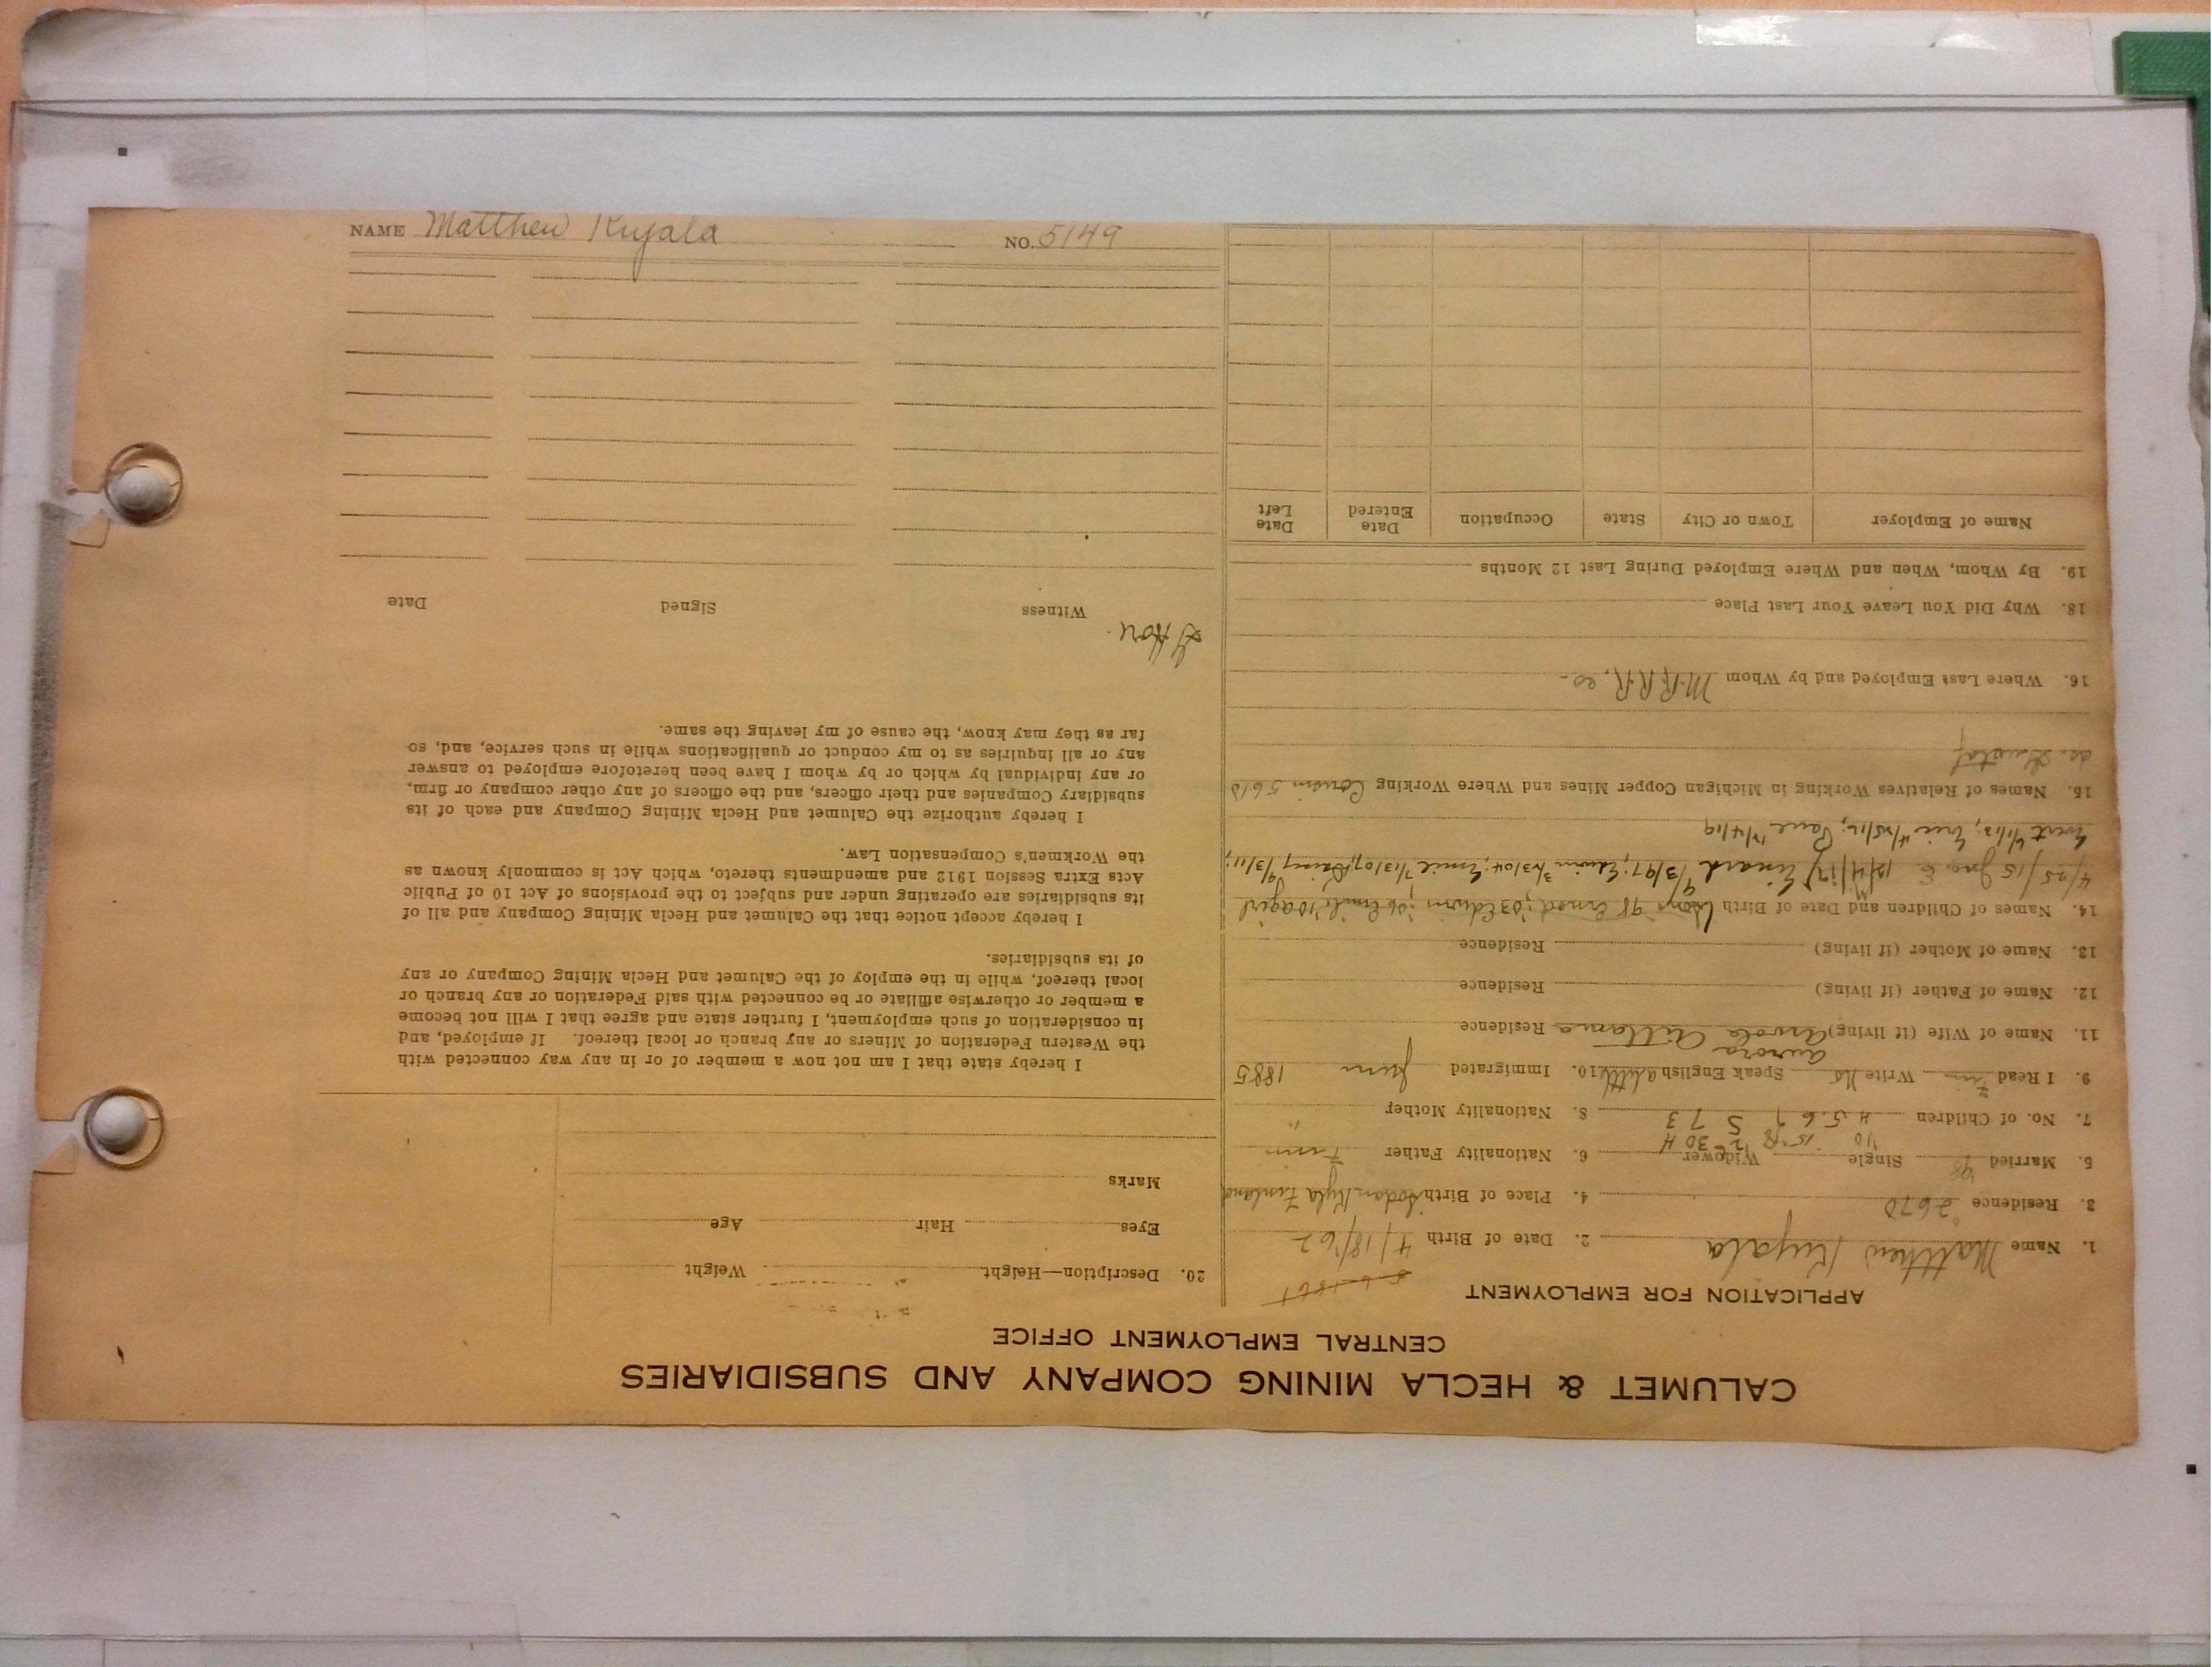 CALUMET & HECLA MINING COMPANY AND SUBSIDIARIES
CENTRAL EMPLOYMENT OFFICE
APPLICATION FOR EMPLOYMENT
1. Name Matthew Kujala 2. Date of Birth 4/18/'62
3. Residence 2670 4. Place of Birth Sodankyla Finland
5. Married '98 Single Widower 6. Nationality Father Finn
7. No. of Children 4 5. 6 7 5 7 3 8. Nationality Mother "
9. I Read Finn Write No Speak English a little 10. Immigrated June 1885
Aurora
11. Name of Wife (if living) Residence
12. Name of Father (if living) Residence
13. Name of Mother (if living) Residence
14. Names of Children and Date of Birth 98 '03 Edwin; '06 Emil; '10 a girl
4/25/15 Jno. E. 12/4/17 Einard 9/3/97; Edwin 3/23/04; Emil 7/13/07; 9/3/11;
6/1/13; 4/25/16; 12/4/19
15. Names of Relatives Working in Michigan Copper Mines and Where Working Cousin 5610
do. Gustaf
16. Where Last Employed and by Whom M.R.R.R. co.
18. Why Did You Leave Your Last Place
19. By Whom, When and Where Employed During Last 12 Months
Name of Employer Town or City State Occupation Date Entered Date Left
20. Description—Height Weight
Eyes Hair Age
Marks
I hereby state that I am not now a member of or in any way connected with
the Western Federation of Miners or any branch or local thereof. If employed, and
in consideration of such employment, I further state and agree that I will not become
a member or otherwise affiliate or be connected with said Federation or any branch or
local thereof, while in the employ of the Calumet and Hecla Mining Company or any
of its subsidiaries.
I hereby accept notice that the Calumet and Hecla Mining Company and all of
its subsidiaries are operating under and subject to the provisions of Act 10 of Public
Acts Extra Session 1912 and amendments thereto, which Act is commonly known as
the Workmen's Compensation Law.
I hereby authorize the Calumet and Hecla Mining Company and each of its
subsidiary Companies and their officers, and the officers of any other company or firm,
or any individual by which or by whom I have been heretofore employed to answer
any or all inquiries as to my conduct or qualifications while in such service, and, so
far as they may know, the cause of my leaving the same.
Witness Signed Date
NAME Matthew Kujala NO. 5149